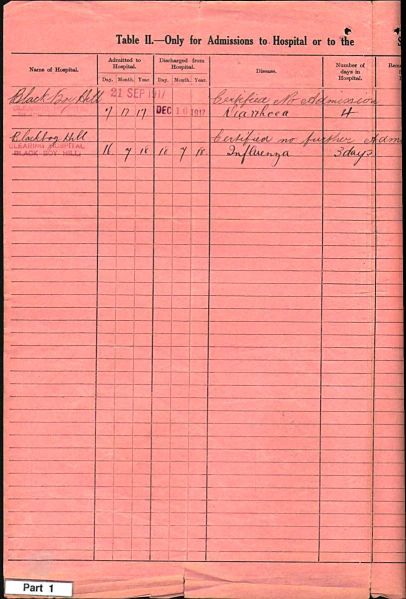 Table II.—Only for Admissions to Hospital or to the S
Name of Hospital.
Admitted to Hospital.
Discharged from Hospital.
Disease.
Number of days in Hospital.
Rema
Day. Month. Year. Day. Month. Year.
Black Boy Hill 21 SEP 1917 Certified No Admission
7 12 17 DEC 10 1917 Diarrhoea 4
Blackboy Hill Certified no further Adm
CLEARING HOSPITAL 16 7 18 18 7 18 Influenza 3 days
BLACK BOY HILL
Part 1